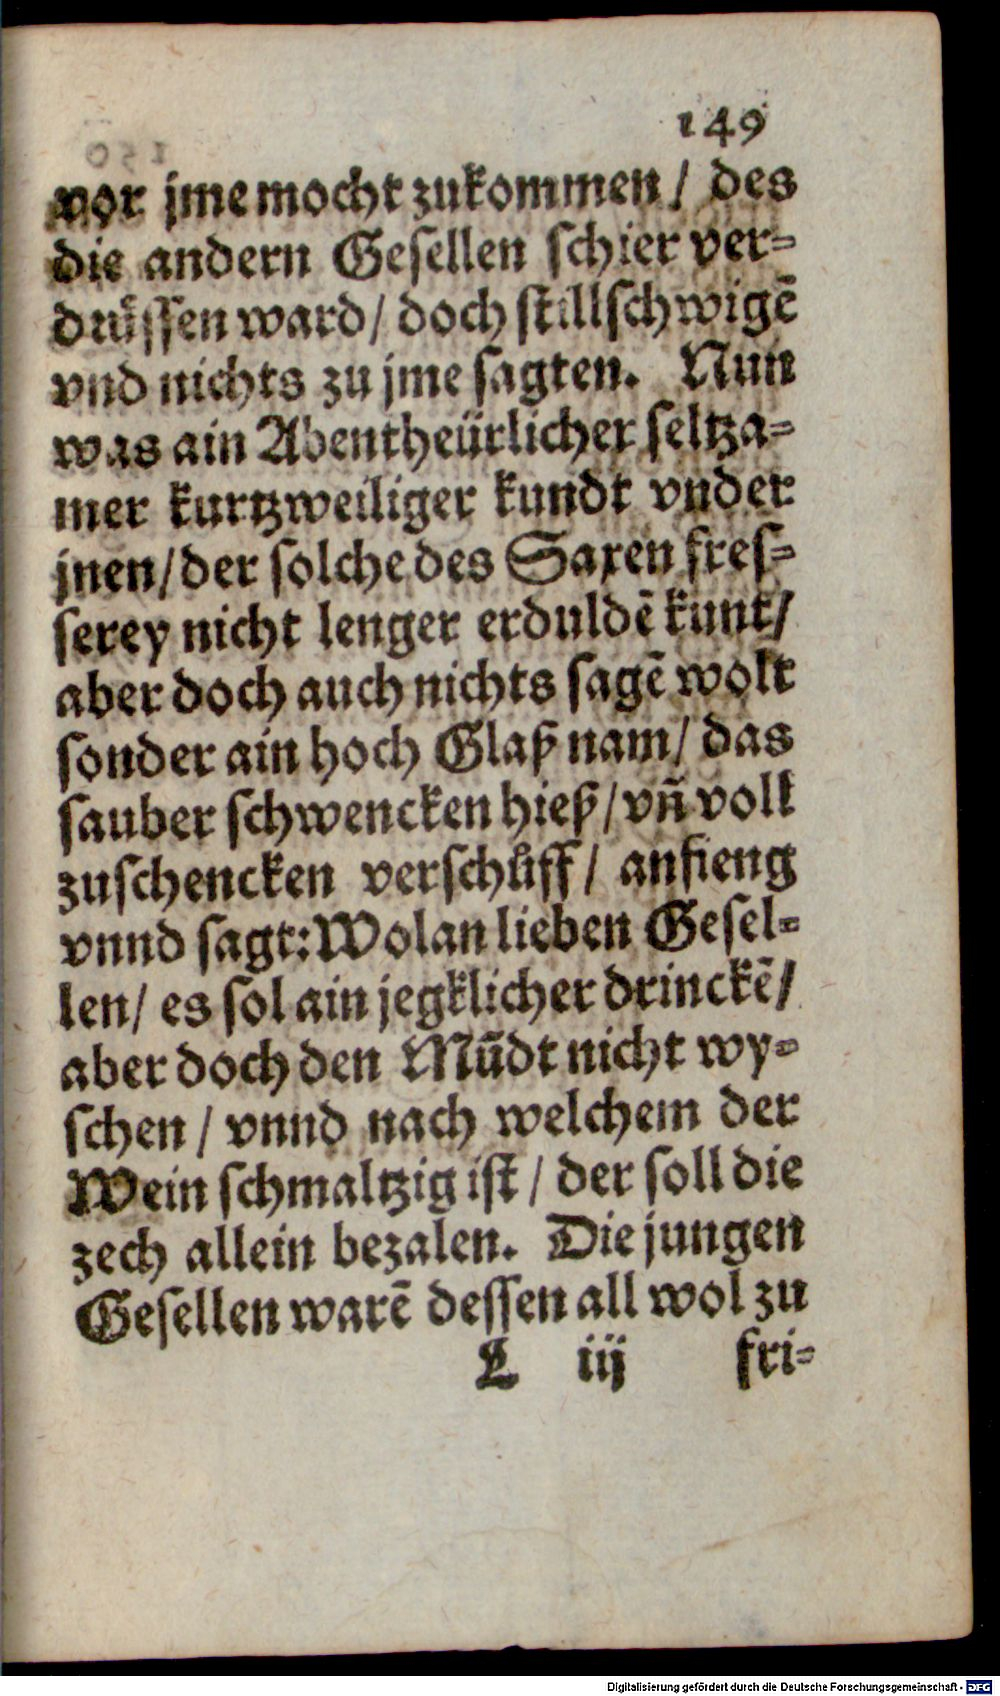 149
vor jme mocht zukommen / des
die andern Gesellen schier ver=
drüssen ward / doch stillschwigē
vnd nichts zu jme sagten. Nun
was ain Abentheürlicher seltza=
mer kurtzweiliger kundt vnder
jnen / der solche des Saxen fres=
serey nicht lenger erduldē kunt /
aber doch auch nichts sagē wolt
sonder ain hoch Glaß nam / das
sauber schwencken hieß / vñ voll
zuschencken verschůff / anfieng
vnnd sagt: Wolan lieben Gesel=
len / es sol ain jegklicher drinckē /
aber doch den Mūdt nicht wy=
schen / vnnd nach welchem der
Wein schmaltzig ist / der soll die
zech allein bezalen. Die jungen
Gesellen warē dessen all wol zu
L iij fri=
Digitalisierung gefördert durch die Deutsche Forschungsgemeinschaft - DFG